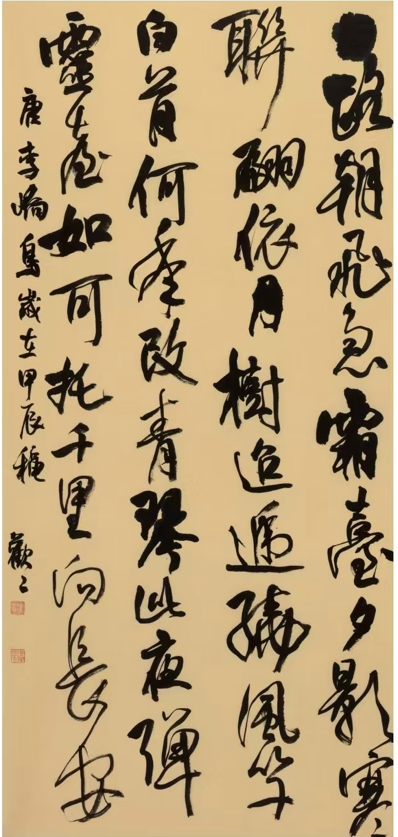 日路朝飛急霜臺夕影寒
聯翩依月樹迢遞繞風竿
白首何年改青琴此夜彈
靈臺如可托千里向長安
唐李嶠烏歲在甲辰穐